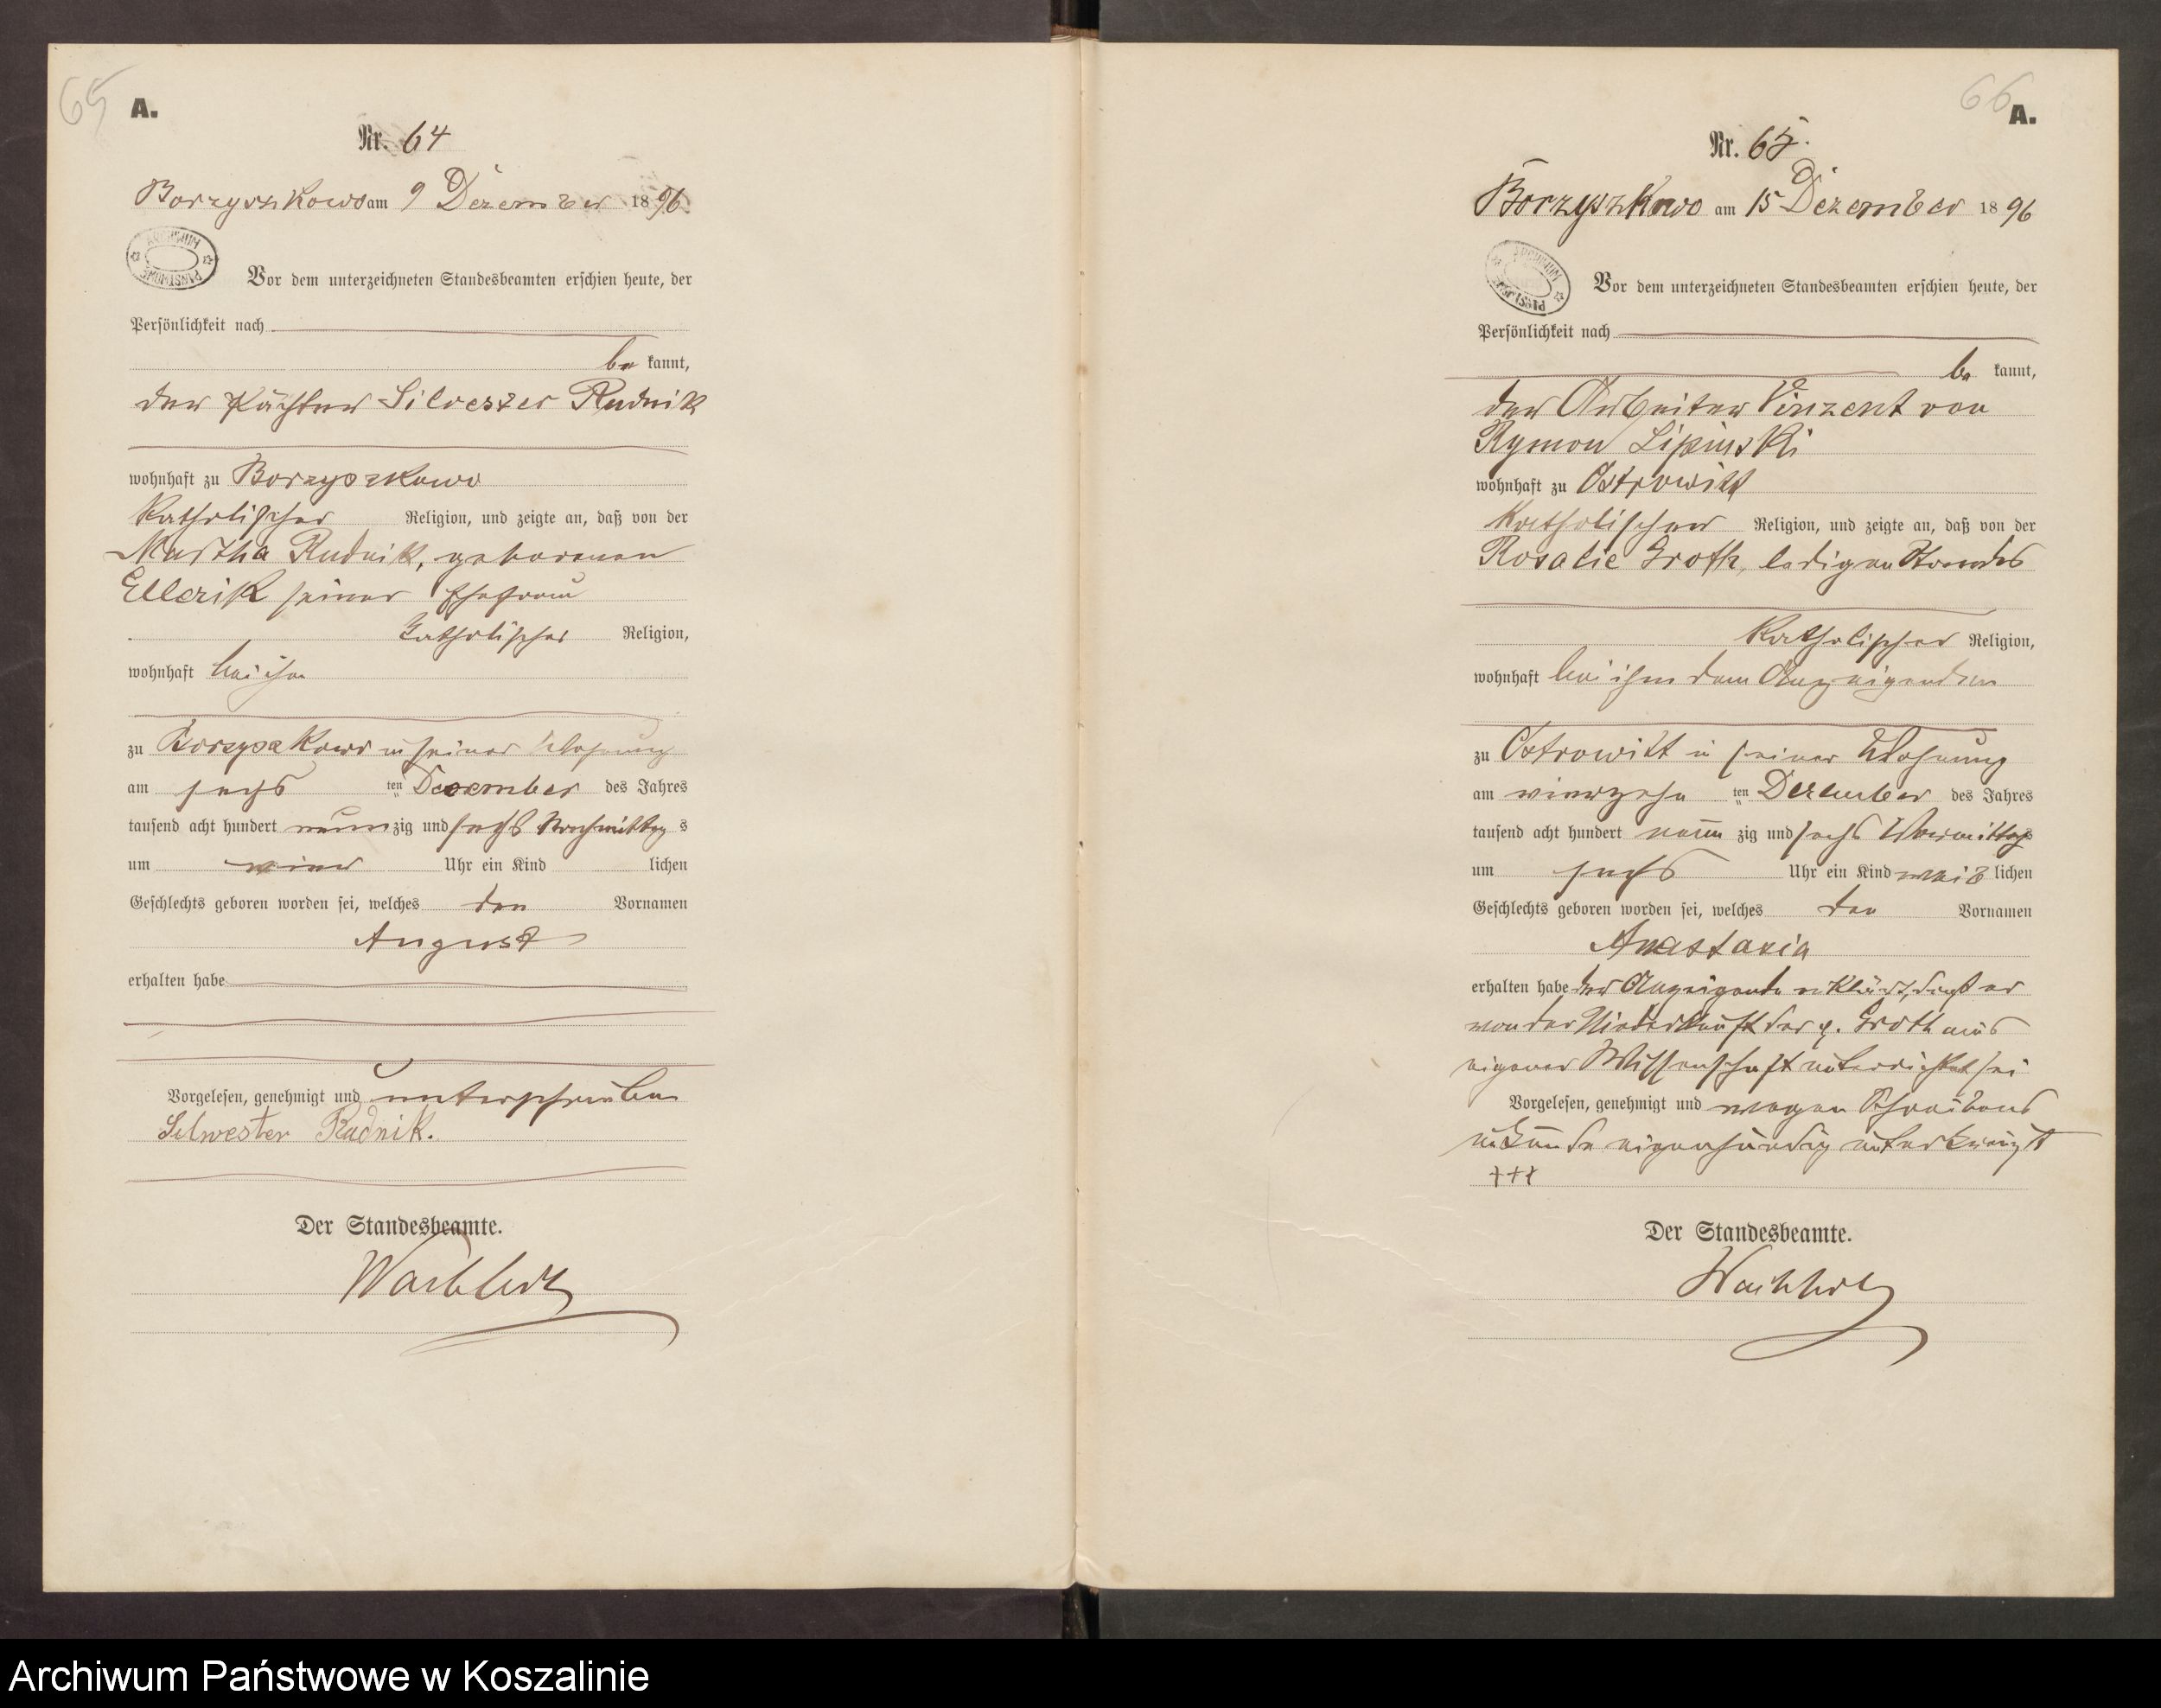 65
A.
Nr. 64
Borzyszkowo am 9 Dezember 1896.
ARCHIWUM PAŃSTWOWE
Vor dem unterzeichneten Standesbeamten erschien heute, der
Persönlichkeit nach
be kannt,
der Pächter Silvester Rudnik
wohnhaft zu Borzyszkowo
katholischer Religion, und zeigte an, daß von der
Martha Rudnik, geborenen
Ellerik seiner Ehefrau
katholischer Religion,
wohnhaft bei ihm
zu Borzyszkowo in seiner Wohnung
am sechs ten Dezember des Jahres
tausend acht hundert neun zig und sechs Nachmittag s
um vier Uhr ein Kind lichen
Geschlechts geboren worden sei, welches den Vornamen
August
erhalten habe
Vorgelesen, genehmigt und unterschrieben
Silwester Rudnik.
Der Standesbeamte.
66
A.
Nr. 65.
Borzyszkowo am 15 Dezember 1896
ARCHIWUM PAŃSTWOWE
Vor dem unterzeichneten Standesbeamten erschien heute, der
Persönlichkeit nach
be kannt,
der Arbeiter Vinzent von
Rymon Lipinski
wohnhaft zu Ostrowitt
katholischer Religion, und zeigte an, daß von der
Rosalie Groth, ledigen Standes
katholischer Religion,
wohnhaft bei ihm dem Anzeigenden
zu Ostrowitt in seiner Wohnung
am vierzehn ten Dezember des Jahres
tausend acht hundert neun zig und sechs Vormittags
um sechs Uhr ein Kind weib lichen
Geschlechts geboren worden sei, welches den Vornamen
Anastasia
erhalten habe der Anzeigende erklärt, daß er
von der Niederkunft der p. Groth aus
eigener Wissenschaft unterrichtet sei
Vorgelesen, genehmigt und wegen Schreibens
unkunde eigenhändig unterkreuzt
+++
Der Standesbeamte.
Archiwum Państwowe w Koszalinie